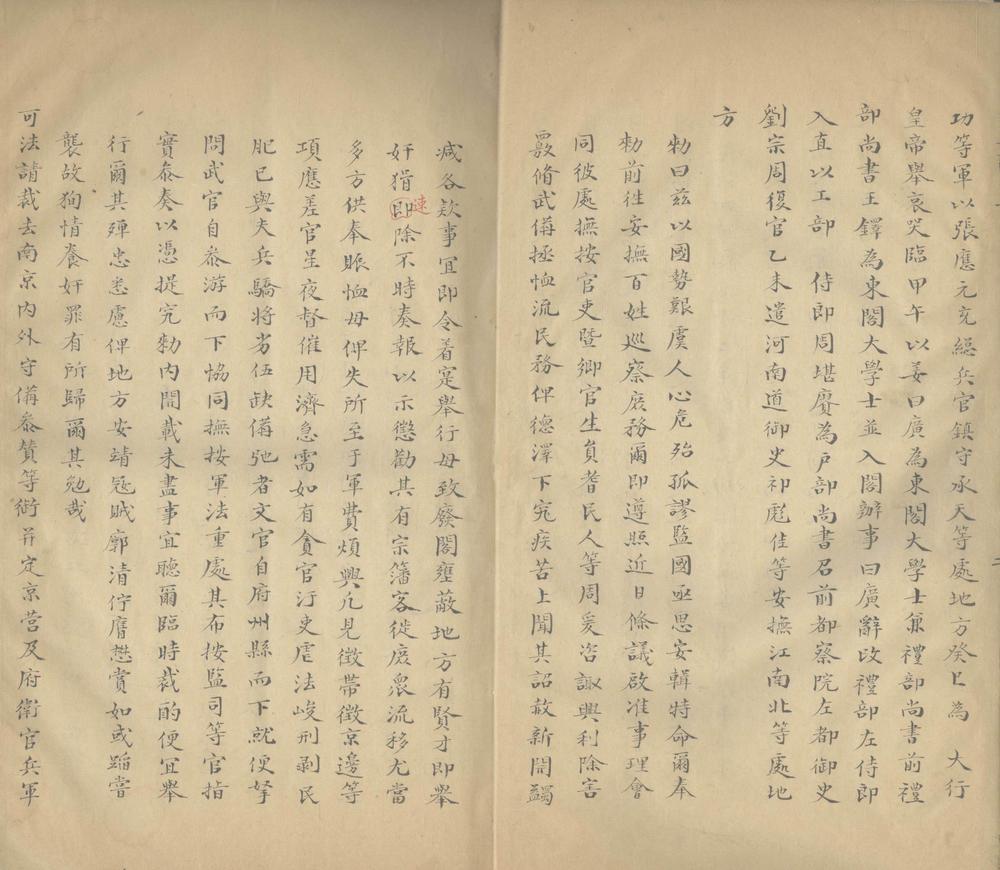 功等軍以張應元充總兵官鎮守承天等處地方癸巳為　大行
皇帝舉哀哭臨甲午以姜曰廣為東閣大學士兼禮部尚書前禮
部尚書王鐸為東閣大學士並入閣辦事曰廣辭改禮部左侍郎
入直以工部　侍郎周堪賡為戶部尚書召前都察院左都御史
劉宗周復官乙未遣河南道御史祁彪佳等安撫江南北等處地
方
勑曰茲以國勢艱虞人心危殆孤謬監國亟思安輯特命爾奉
勑前徃安撫百姓巡察庶務爾即遵照近日條議啟准事理會
同彼處撫按官吏暨鄉官生員耆民人等周爰咨諏興利除害
覈脩武備拯恤流民務俾德澤下究疾苦上聞其詔赦新開蠲
減各欵事宜即令着寔舉行毋致廢閣壅蔽地方有賢才即舉
奸猾即速除不時奏報以示懲勸其有宗籓客徙庶眾流移尤當
多方供奉賑恤毋俾失所至于軍費煩興凢見徵帶徵京邊等
項應差官星夜督催用濟急需如有貪官汙吏虐法峻刑剥民
肥已與夫兵驕將劣伍缺備弛者文官自府州縣而下就便拏
問武官自叅游而下協同撫按軍法重處其布按監司等官指
實叅奏以憑提究勑內開載未盡事宜聽爾臨時裁酌便宜舉
行爾其殫忠悉慮俾地方安靖冦賊廓清佇膺懋賞如或蹈嘗
襲故狥情養奸罪有所歸爾其勉哉
可法請裁去南京內外守備叅贊等銜并定京營及府衛官兵軍